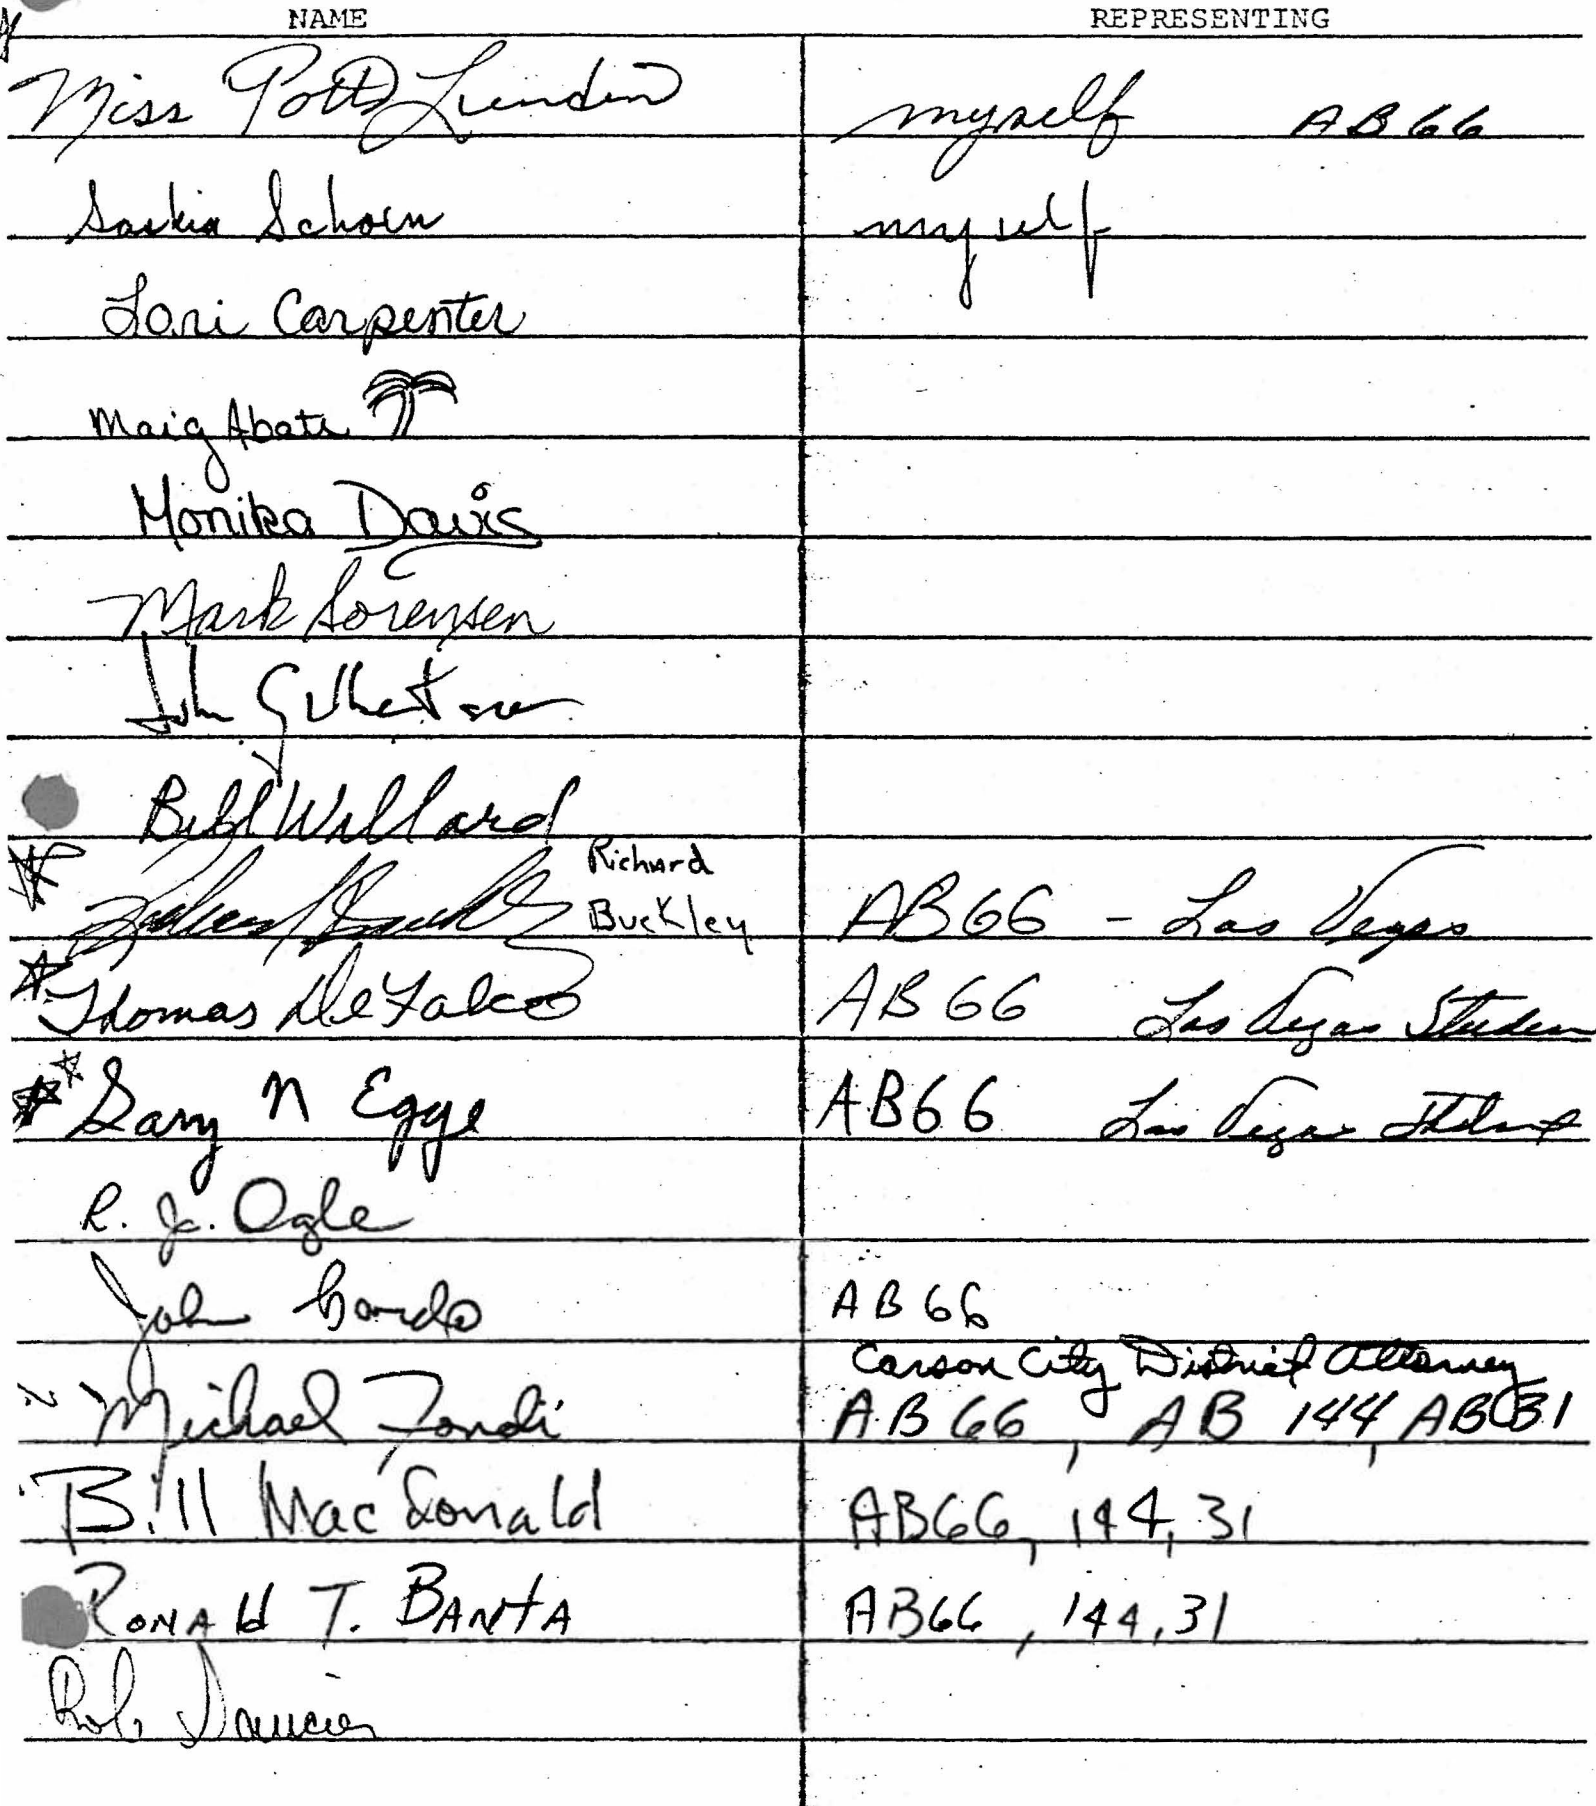 NAME REPRESENTING
Miss Potts Lundin myself AB 66
Saskia Schoen myself
Lori Carpenter
Maig Abate
Monika Davis
Mark Sorensen
John Gilbertson
Bill Willard
Richard
Buckley AB 66 - Las Vegas
Thomas DeFalco AB 66 Las Vegas Studen
Gary N Egge AB66 Las Vegas
R. J. Ogle
John AB 66
Carson City District Attorney
Michael Fondi AB 66, AB 144, AB 31
Bill MacDonald AB66, 144, 31
RONALd T. BANTA AB66, 144, 31
Rob